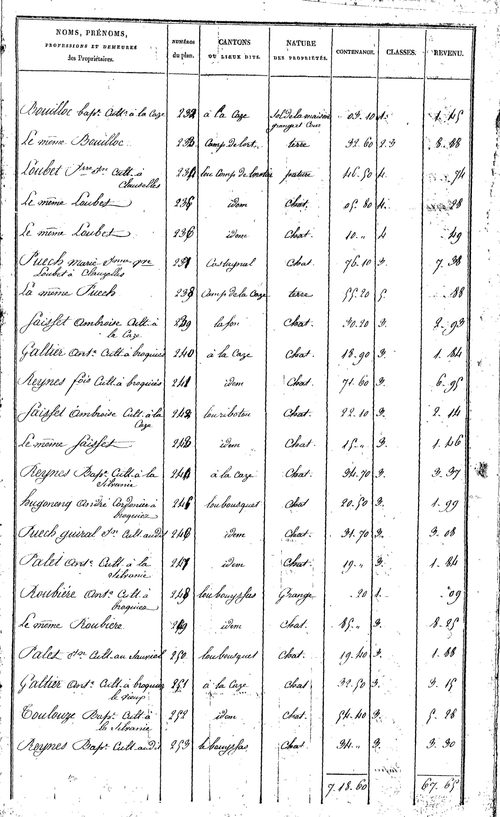 NOMS, PRÉNOMS,
PROFESSIONS ET DEMEURES
des Propriétaires.
NUMÉROS
du plan.
CANTONS
OU LIEUX DITS.
NATURE
DES PROPRIÉTÉS.
CONTENANCE.
CLASSES.
REVENU.
Bouilloc bapt. Cult. à la Caze 232 à la Caze Sol de la maison 03.10 1. 1.45
Le même Bouilloc 233 Camp de lort terre 32.60 2.3 8.88
Loubet Cult. à 234 lou Camp de pature 46.50 4. .74
Clauzelles
Le même Loubet 235 idem Chat. 05.80 4. .28
Le même Loubet 236 idem Chat. 10.,, 4 .49
Puech marie 237 Castagnal Chat. 76.10 3. 7.38
Loubet à Clauzelles
La même Puech 238 Camp de la Caze terre 55.20 5. .88
Saisset Ambroise Cult. à 239 la fon Chat. 30.20 3. 2.93
la Caze
Galtier Ant. Cult. à broquiès 240 à la Caze Chat. 18.90 3. 1.84
Reynes fois Cult. à broquiès 241 idem Chat. 71.60 3. 6.95
Saisset Ambroise Cult. à la 242 Chat. 22.10 3. 2.14
Caze
Le même Saisset 243 idem Chat. 15.,, 3. 1.46
Reynes Bapt. Cult. à la 244 à la Caze Chat. 34.70 3. 3.37
Silvanie
hugonenq André Cordonier à 245 loubousquet Chat 20.50 3. 1.99
broquiez
Puech guiral Cult. audit 246 idem Chat. 31.70 3. 3.08
Palet Ant. Cult. à la 247 idem Chat. 19.,, 3. 1.84
Silvanie
Roubière Ant. Cult. à 248 Grange .20 1. .09
broquiez
Le même Roubière 249 idem Chat. 85.,, 3. 8.25
Palet Cult. au 250 loubousquet Chat. 19.40 3. 1.88
Galtier Ant. Cult. à broquiez 251 à la Caze Chat 32.50 3. 3.15
le vieux
Toulouze Bapt. Cult. à 252 idem Chat. 54.40 3. 5.28
la Silvanie
Reynes Bapt. Cult. audit 253 Chat 34.,, 3. 3.30
7.18.60 67.65